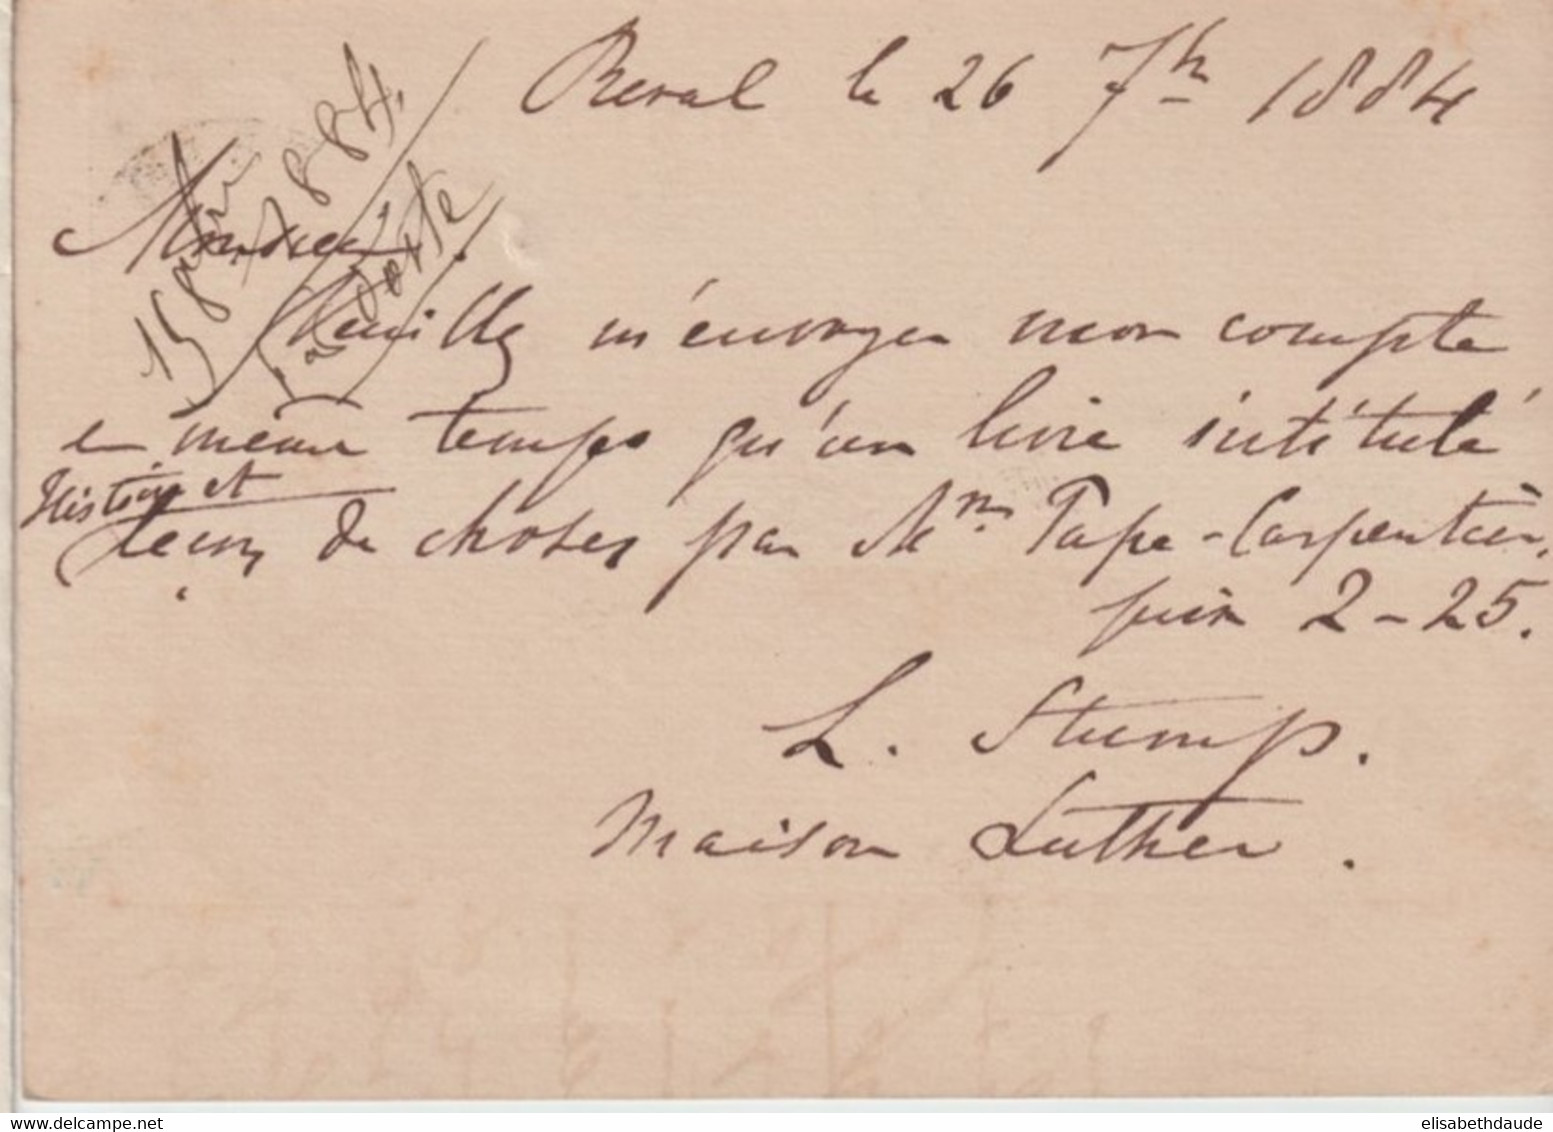 Reval le 26 7bre 1884
Monsieur
Veuillez m'envoyer mon compte
en même temps qu'un livre intitulé
Histoire et
Leçons de choses par Mme Pape-Carpentier,
prix 2-25.
L. Stump.
Maison Luther.
15 8bre 1884.
par Poste
delcampe.net
elisabethdaude